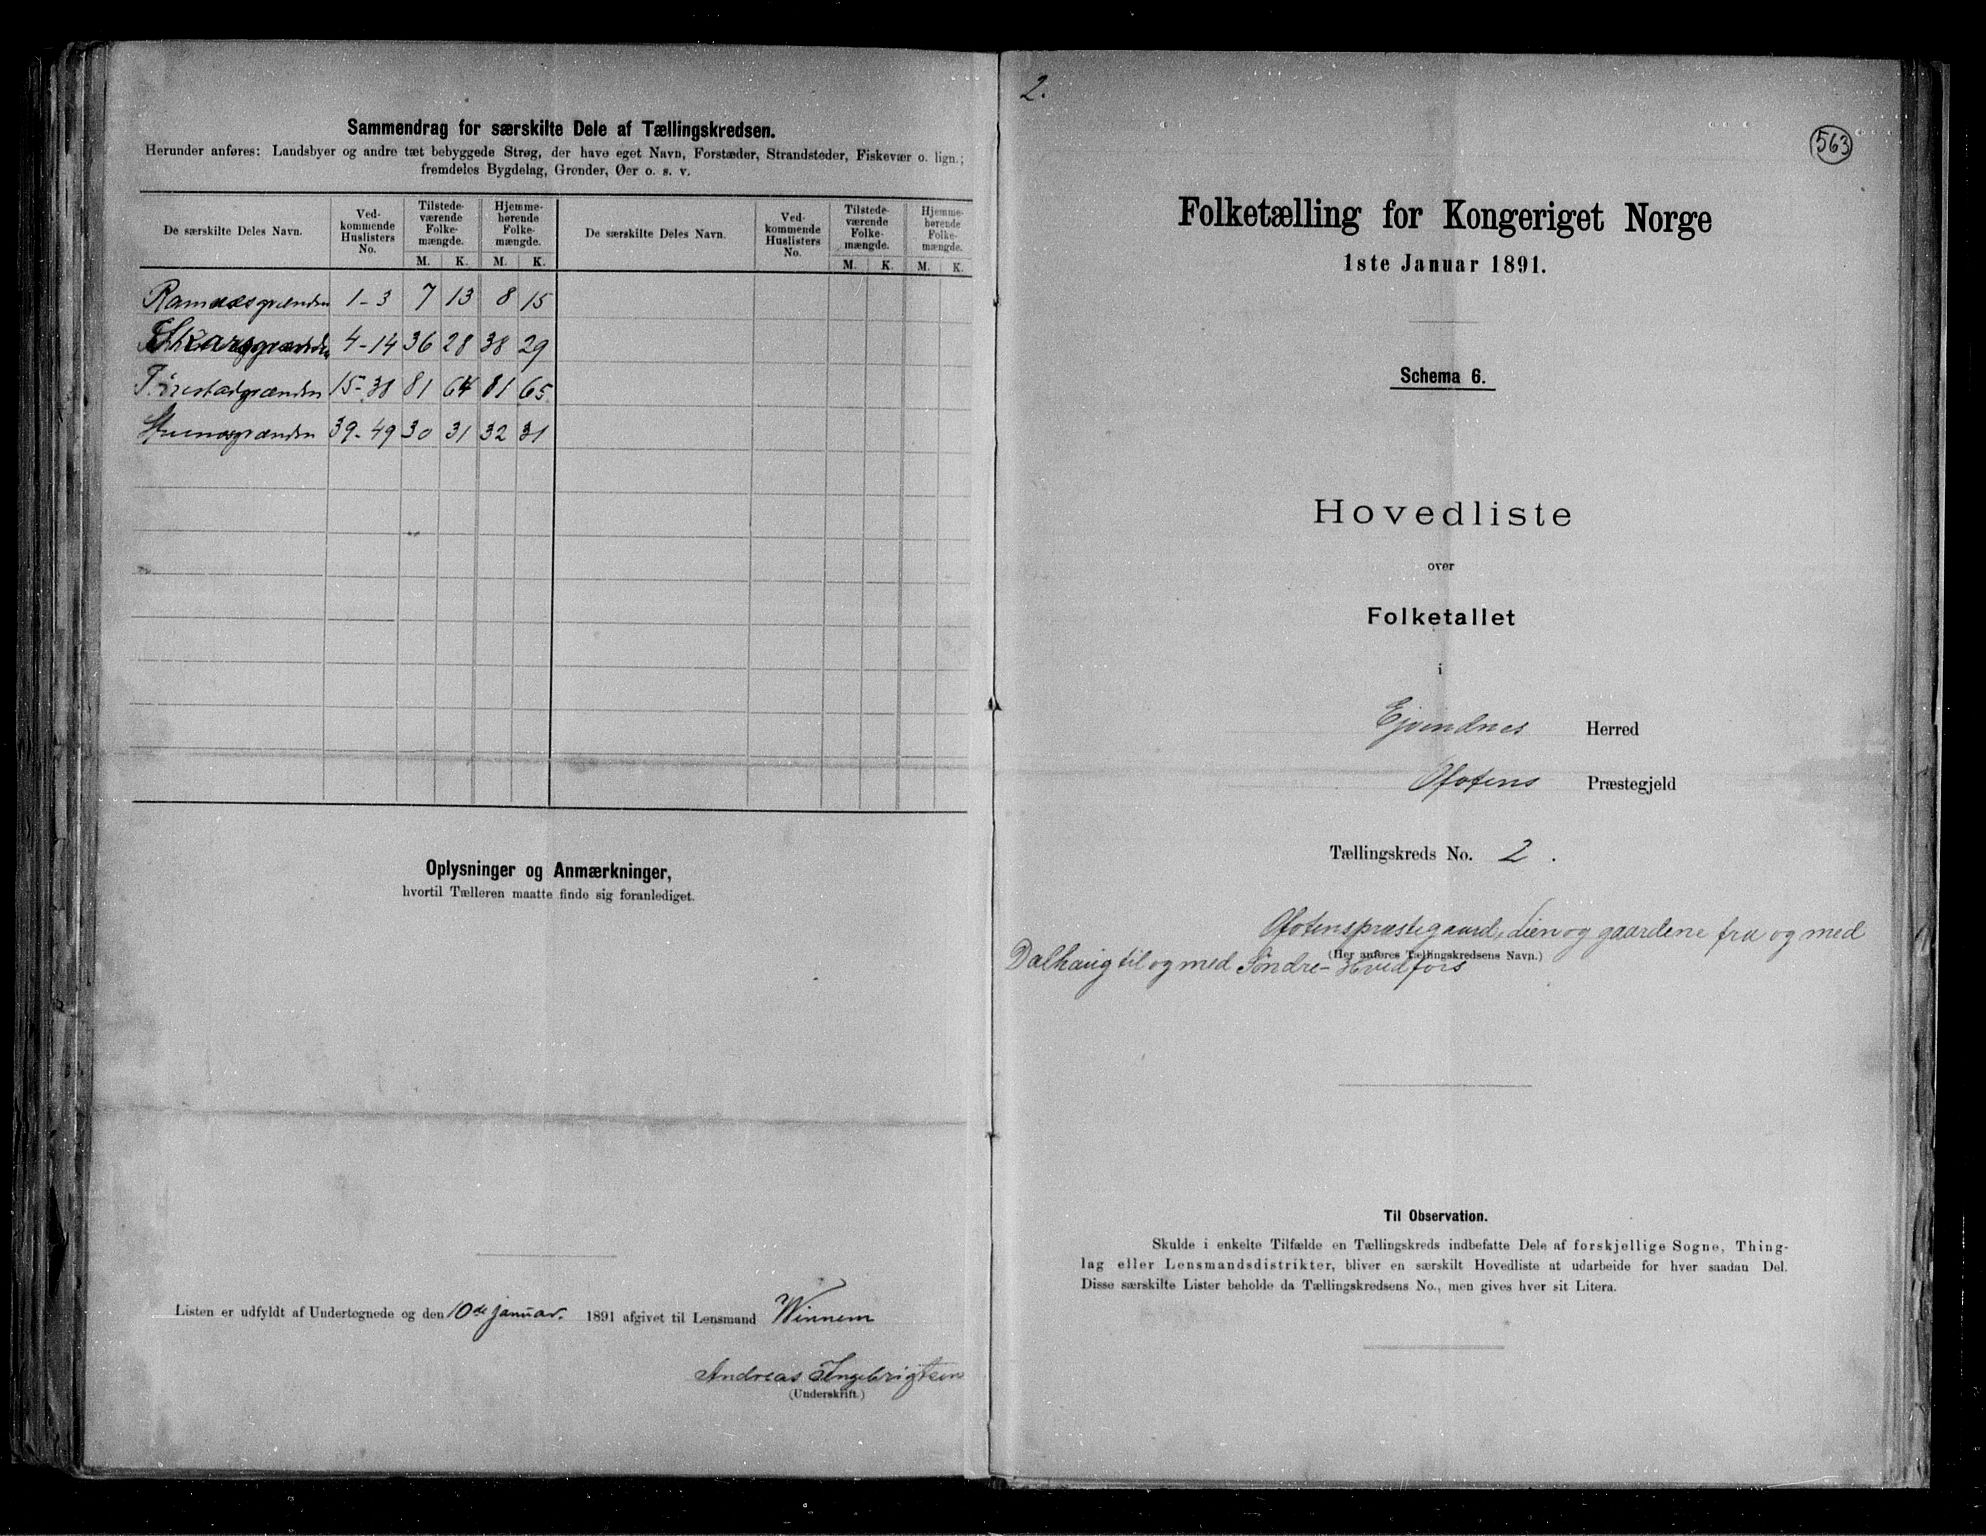 Sammendrag for særskilte Dele af Tællingskredsen.
Herunder anføres: Landsbyer og andre tæt bebyggede Strøg, der have eget Navn, Forstæder, Strandsteder, Fiskevær o. lign.;
fremdeles Bygdelag, Grender, Øer o. s. v.
De særskilte Deles Navn. Ved-kommende Huslisters No. Tilstede-værende Folke-mængde. Hjemme-hørende Folke-mængde. De særskilte Deles Navn. Ved-kommende Huslisters No. Tilstede-værende Folke-mængde. Hjemme-hørende Folke-mængde.
M. K. M. K. M. K. M. K.
Ramnæsgrænden 1-3 7 13 8 15
4-14 36 28 38 29
15-38 81 64 81 65
39-49 30 31 32 31
Oplysninger og Anmærkninger,
hvortil Tælleren maatte finde sig foranlediget.
Listen er udfyldt af Undertegnede og den 10de januar. 1891 afgivet til Lensmand Winnem
Andreas Ingebrigtsen
(Underskrift.)
2.
563
Folketælling for Kongeriget Norge
1ste Januar 1891.
Schema 6.
Hovedliste
over
Folketallet
i
Ejvindnes Herred
Ofotens Præstegjeld
Tællingskreds No. 2.
Ofotenspræstegaard, Lien og gaardene fra og med
(Her anføres Tællingskredsens Navn.)
Dalhaug til og med Søndre-Hvedfors
Til Observation.
Skulde i enkelte Tilfælde en Tællingskreds indbefatte Dele af forskjellige Sogne, Thing-
lag eller Lensmandsdistrikter, bliver en særskilt Hovedliste at udarbeide for hver saadan Del.
Disse særskilte Lister beholde da Tællingskredsens No., men gives hver sit Litera.